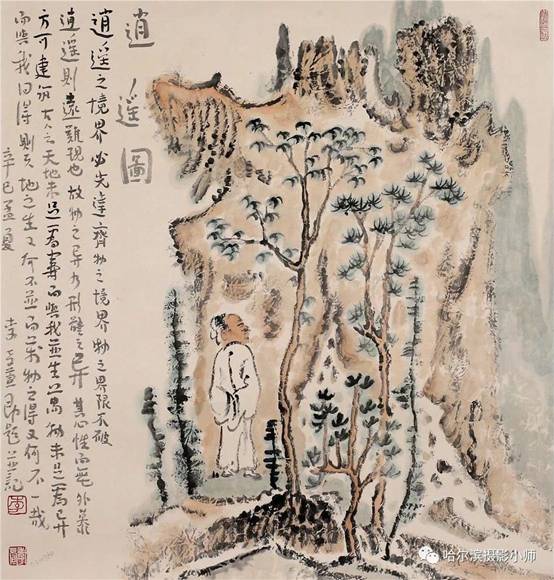 逍遥圖
逍遥之境界必先達齊物之境界物之界限不破
逍遥则遠難現也故物之异乃形體之异其心性而無外
方可建 天地未足为寿而与我並生萬物未足为异
而与我同得则天地之生又何不並而萬物之得又何不一哉
辛巳孟夏 李 题並記
李
哈尔滨摄影小师